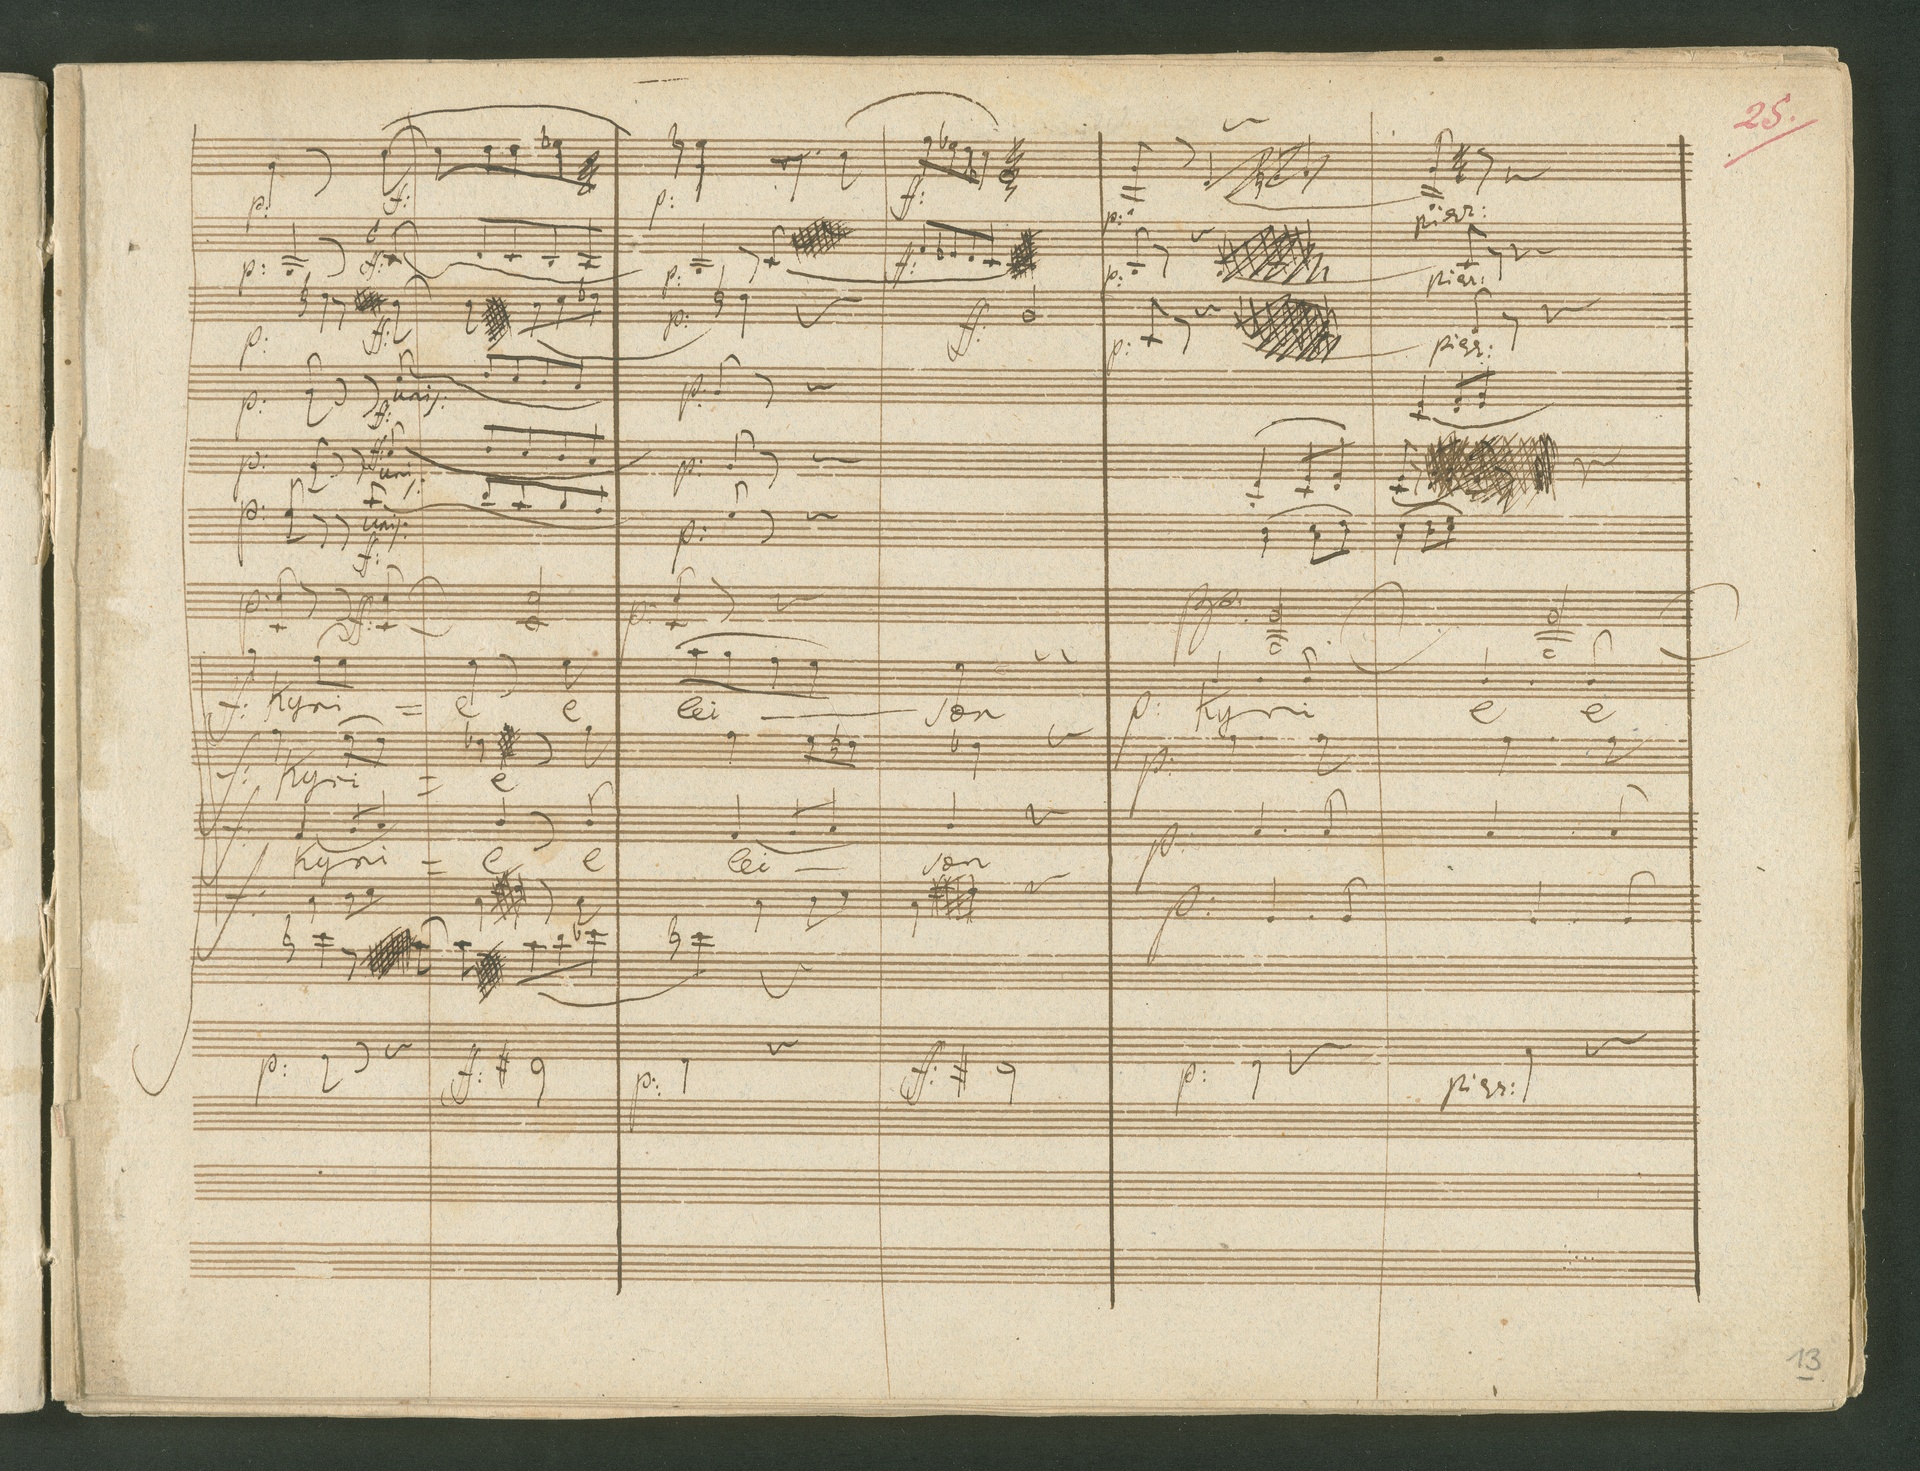 25.
p: ff: p: ff: p: pizz:
p: ff: p: ff: p: pizz:
p: ff: p: ff: p: pizz:
p: ff: unis: p:
p: ff: unis: p:
p: unis: ff: p:
p: ff: p: pp:
f: Kyri = e e lei — son p: Kyri e e
f: Kyri = e p:
f: Kyri = e e lei — son p:
f: p:
p: ff: p: ff: p: pizz:
13